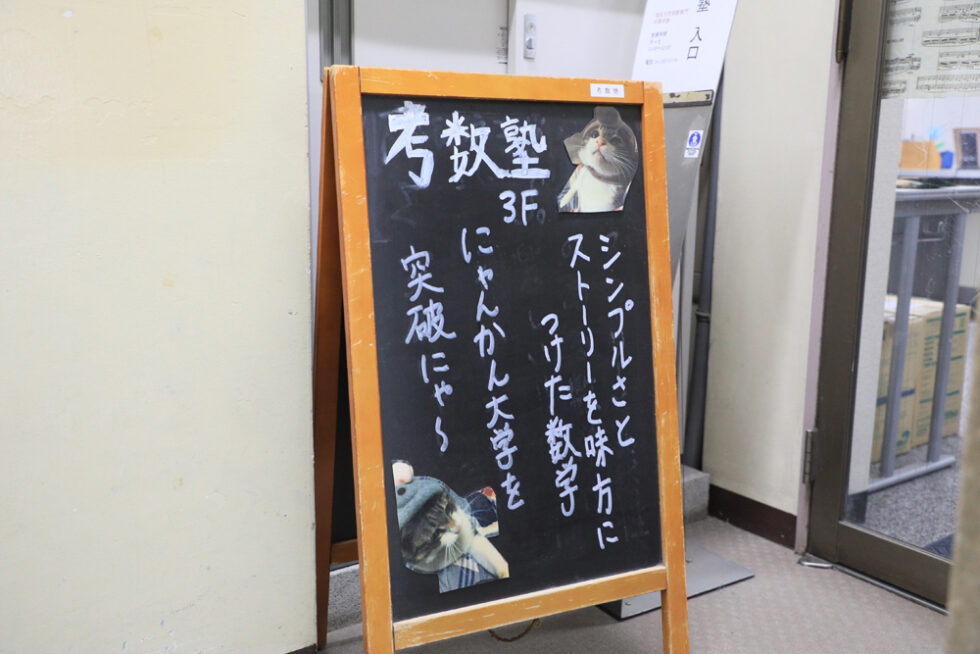 考数塾
考数塾
3F
シンプルさと
ストーリーを味方に
つけた数学
にゃんかん大学を
突破にゃ～
塾 入口